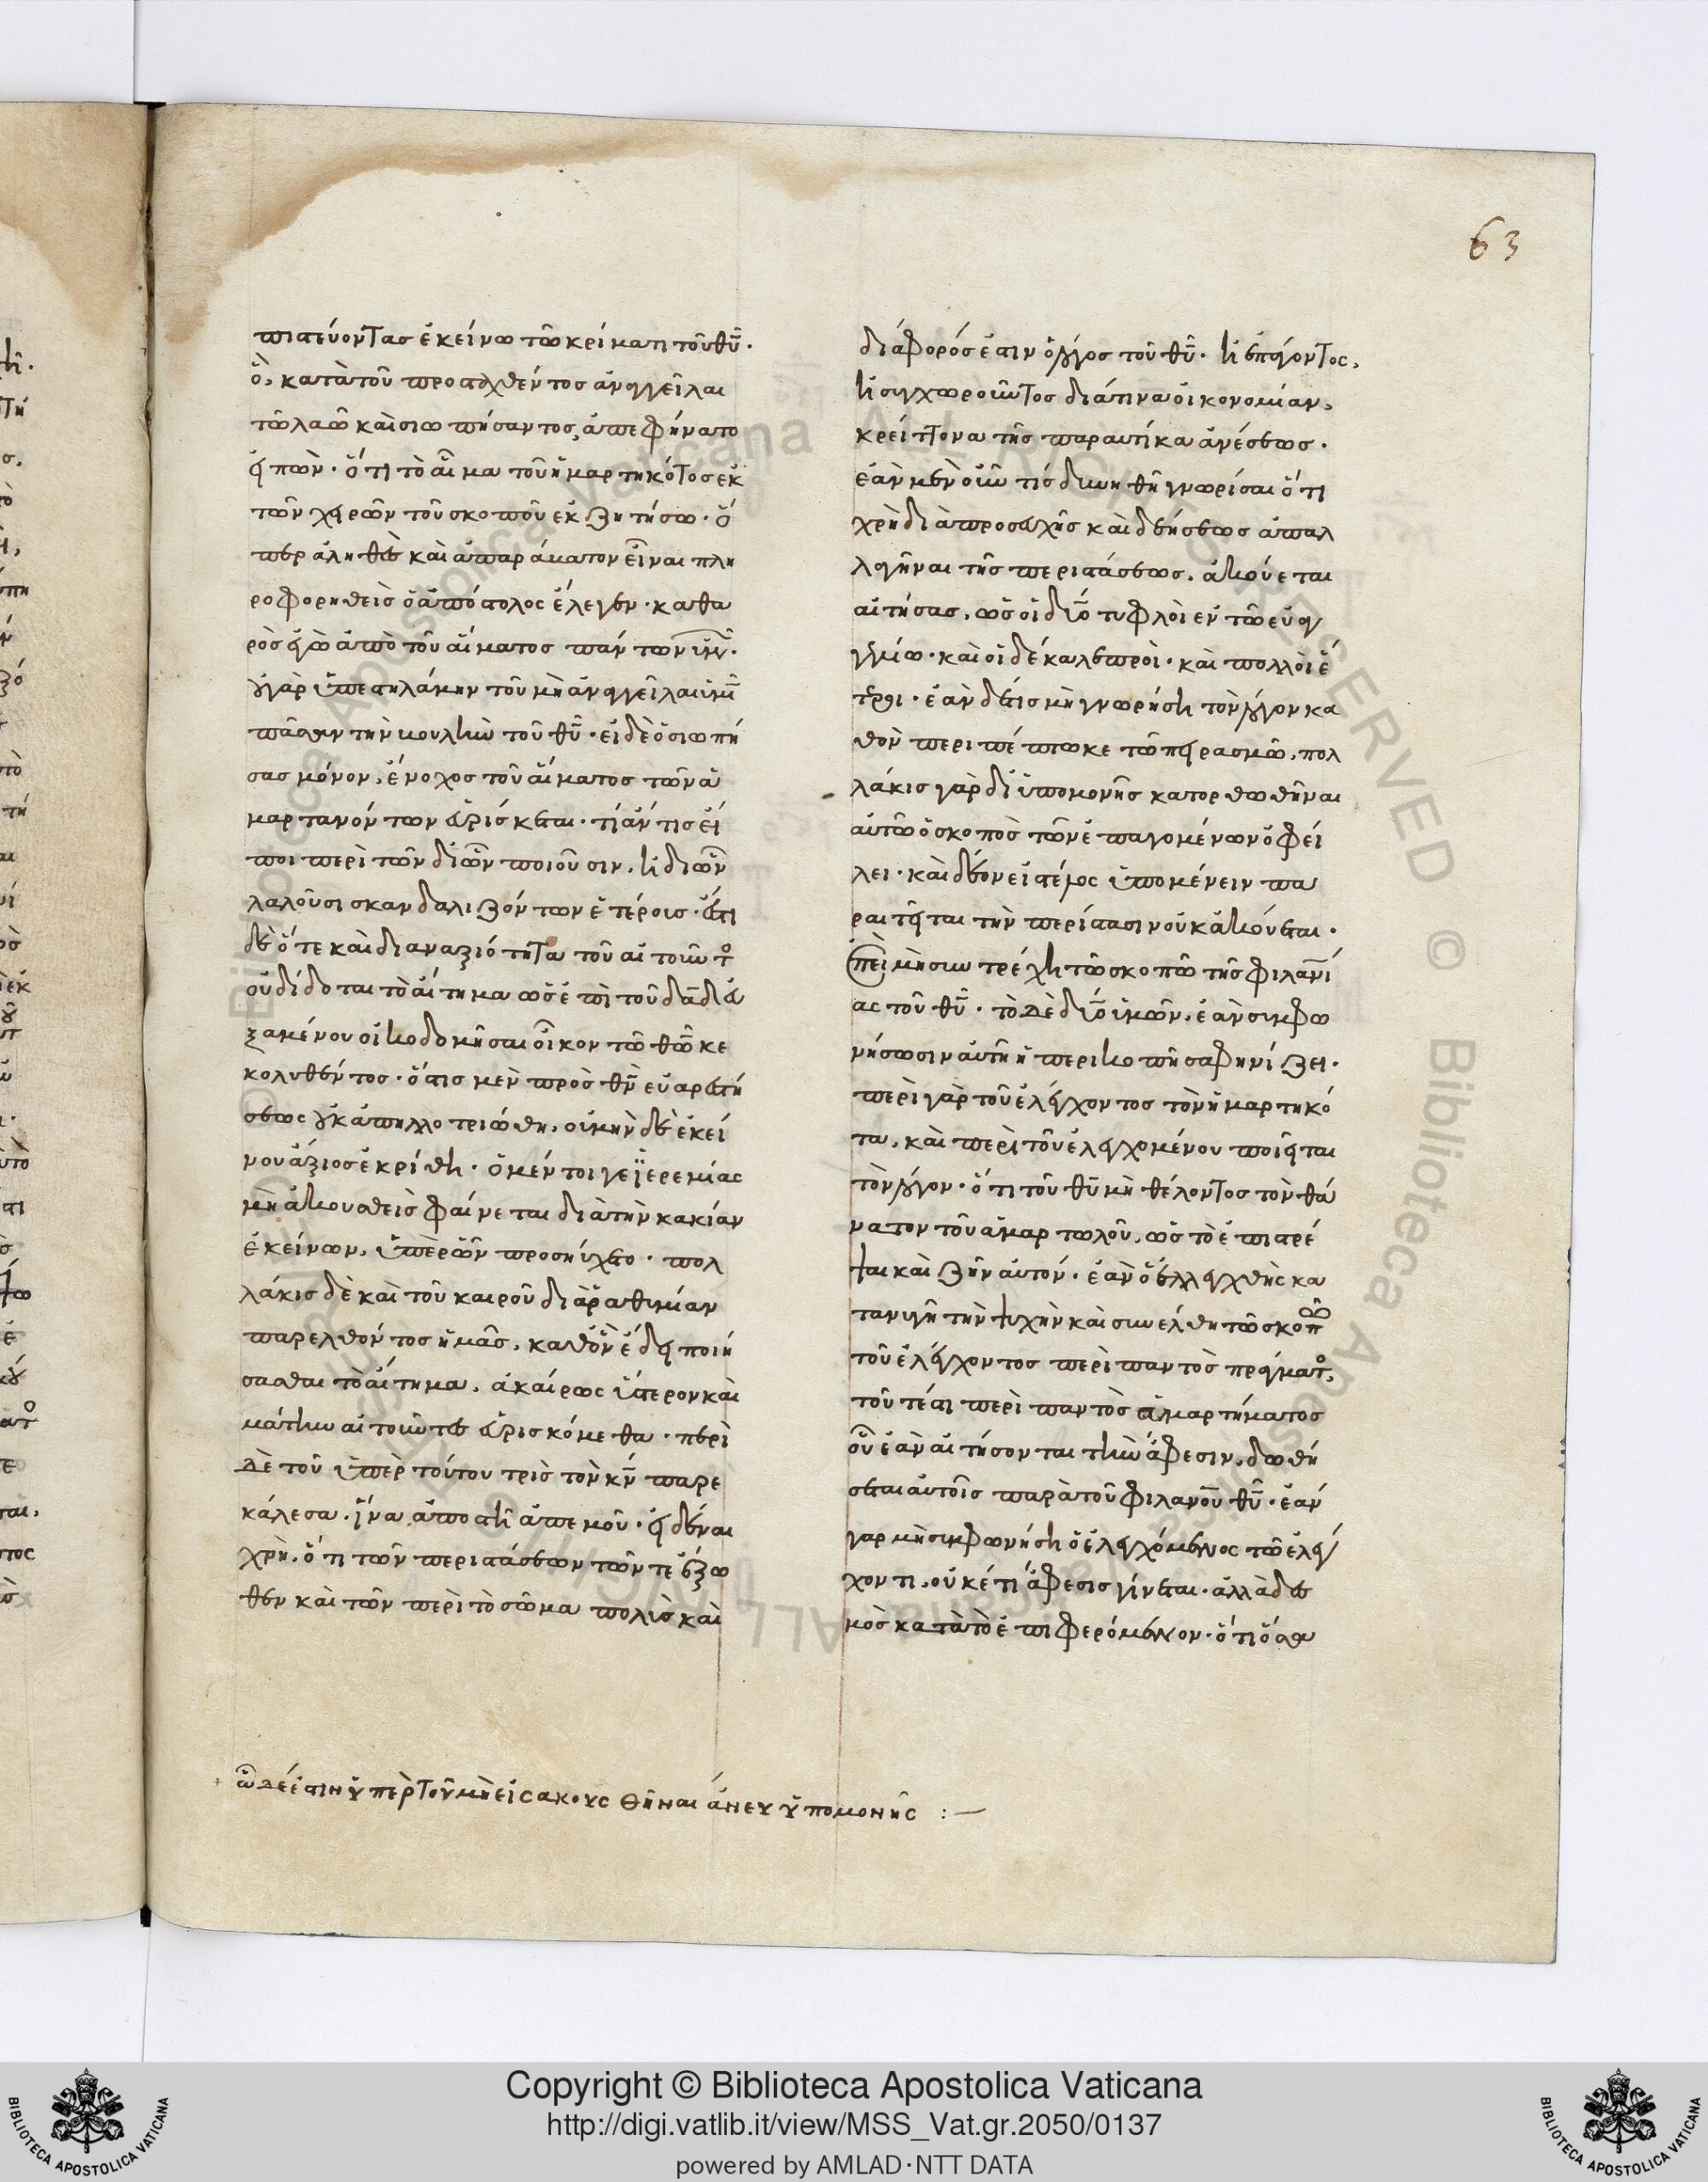 63
πιστεύοντας ἐκείνω τῶ κρίματι τοῦ θῦ·
ὃ, κατὰ τοῦ προσταχθέντος ἀναγγεῖλαι
τῶ λαῶ καὶ σιωπήσαντος, ἀπεφήνατο
εἰπὼν· ὅτι τὸ αἷμα τοῦ ἡμαρτηκότος ἐκ
τῶν χειρῶν τοῦ σκοποῦ ἐκζητήσω· ὅ
περ ἀληθὲς καὶ ἀπαράβατον εἶναι πλη
ροφορηθεὶς ὁ ἀπόστολος ἔλεγεν· καθα
ρὸς ἐγὼ ἀπὸ τοῦ αἵματος πάντων ὑμῶν·
οὐ γὰρ ὑπεστειλάμην τοῦ μὴ ἀναγγεῖλαι ὑμῖν
πᾶσαν τὴν βουλὴν τοῦ θῦ· εἰ δὲ ὁ σιωπή
σας μόνον, ἔνοχος τοῦ αἵματος τῶν ἁ
μαρτανόντων εὑρίσκεται· τί ἄν τις εἴ
ποι περὶ τῶν δι ὧν ποιοῦσιν, ἢ δι ὧν
λαλοῦσι σκανδαλιζόντων ἑτέροις· ἔστι
δὲ ὅτε καὶ δι ἀναξιότητα τοῦ αἰτοῦντος
οὐ δίδοται τὸ αἴτημα ὡς ἐπὶ τοῦ δᾱδ εὐ
ξαμένου οἰκοδομῆσαι οἶκον τῶ θῶ κε
κολυθέντος· ὅστις μὲν πρὸς θν εὐαρεστή
σεως οὐκ ἀπηλλοτριώθη, οὐ μὴν δὲ ἐκεί
νου ἄξιος ἐκρίθη· ὁ μέντοιγε ἱερεμίας
μὴ ἀκουσθεὶς φαίνεται διὰ τὴν κακίαν
ἐκείνων, ὑπὲρ ὧν προσηύχετο· πολ
λάκις δὲ καὶ τοῦ καιροῦ διὰ ῥαθυμίαν
παρελθόντος ἡμᾶς, καθ ὃν ἔδει ποιή
σασθαι τὸ αἴτημα, ἀκαίρως ὕστερον καὶ
μάτην αἰτοῦντες εὑρισκόμεθα· περὶ
δὲ τοῦ ὑπὲρ τούτου τρὶς τὸν κν παρε
κάλεσα, ἵνα ἀποστῆ ἀπεμοῦ· εἰδέναι
χρὴ, ὅτι τῶν περιστάσεων τῶν τε ἔξω
θεν καὶ τῶν περὶ τὸ σῶμα πολὺς καὶ
διάφορός ἐστιν ὁ λόγος τοῦ θῦ· ἢ ἐπάγοντος,
ἢ συγχωροῦντος διά τινα οἰκονομίαν,
κρείττονα τῆς παραυτίκα ἀνέσεως·
ἐὰν μὲν οὖν τίς δυνηθῆ γνωρίσαι ὅτι
χρὴ διὰ προσευχῆς καὶ δεήσεως ἀπαλ
λαγῆναι τῆς περιστάσεως, ἀκούεται
αἰτήσας, ὡς οἱ δύο τυφλοὶ ἐν τῶ εὐαγ
γελίω· καὶ οἱ δέκα λεπροὶ· καὶ πολλοὶ ἕ
τεροι· ἐὰν δέ τις μὴ γνωρήση τὸν λόγον κα
θὸν περιπέπτωκε τῶ πειρασμῶ, πολ
λάκις γὰρ δι ὑπομονῆς κατορθωθῆναι
αὐτῶ ὁ σκοπὸς τῶν ἐπαγομένων ὀφεί
λει· καὶ δέον εἰς τέλος ὑπομένειν πα
ραιτῆται τὴν περίστασιν οὐκ ἀκούεται·
ἐπεὶ μὴ συντρέχη τῶ σκοπῶ τῆς φιλανι
ας τοῦ θῦ· τὸ δὲ δύο ὑμῶν, ἐὰν συμφω
νήσωσιν αὐτὴ ἡ περικοπὴ σαφηνίζει·
περὶ γὰρ τοῦ ἐλέγχοντος τὸν ἡμαρτηκό
τα, καὶ περὶ τοῦ ἐλεγχομένου ποιεῖται
τὸν λόγον· ὅτι τοῦ θῦ μὴ θέλοντος τὸν θά
νατον τοῦ ἁμαρτωλοῦ, ὡς τὸ ἐπιστρέ
ψαι καὶ ζῆν αὐτόν· ἐὰν ὁ ἐλλεγχθὴς κα
τανυγῆ τὴν ψυχὴν καὶ συνέλθη τῶ σκοπῶ
τοῦ ἐλέγχοντος περὶ παντὸς πράγματος,
τουτέστι περὶ παντὸς ἁμαρτήματος
οὗ ἐὰν αἰτήσονται τὴν ἄφεσιν, δωθή
σεται αὐτοῖς παρὰ τοῦ φιλανου θῦ· ἐὰν
γαρ μὴ συμφωνήση ὁ ἐλεγχόμενος τῶ ἐλέγ
χοντι, οὐκέτι ἄφεσις γίνεται· ἀλλὰ δεσ
μὸς κατὰ τὸ ἐπιφερόμενον· ὅτι ὅσα
ὧδέ ἐστιν ὑπὲρ τοῦ μὴ εἰσακουσθῆναι ἄνευ ὑπομονῆς :—
Copyright © Biblioteca Apostolica Vaticana
http://digi.vatlib.it/view/MSS_Vat.gr.2050/0137
powered by AMLAD·NTT DATA
BIBLIOTECA APOSTOLICA VATICANA
BIBLIOTECA APOSTOLICA VATICANA